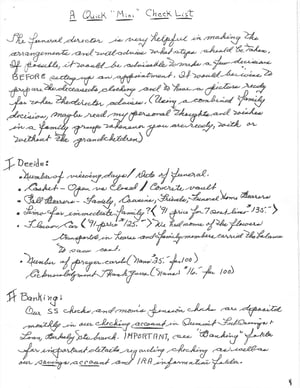 A Quick "Min." Check List
The funeral director is very helpful in making the
arrangements and will advise what steps should be taken.
If possible, it would be advisable to make a few decisions
BEFORE setting up an appointment. It would be wise to
prepare the deceased's clothing and to have a picture ready
for when the director advises. (Using a combined family
decision, maybe read my personal thoughts and wishes
in a family group whenever you are ready, with or
without the grandchildren)
I Decide:
• Number of viewing days / Date of funeral.
• Casket - Open vs Closed / Concrete vault
• Pall Bearers - Family, Cousins, Friends, Funeral Home Bearers
• Limo for immediate family?
• Flower Car
transported in hearse and family members carried the balance
• Number of prayer cards (Mom 35.- for 100)
Acknowledgment Thank yous (Moms 16.- for 100)
II Banking:
Our SS checks and mom's pension checks are deposited
monthly in our checking account in Summit Fed. Savings &
Loan, branch. IMPORTANT, see "Banking" folder
for important details regarding checking as well as
our savings account and IRA information folder.